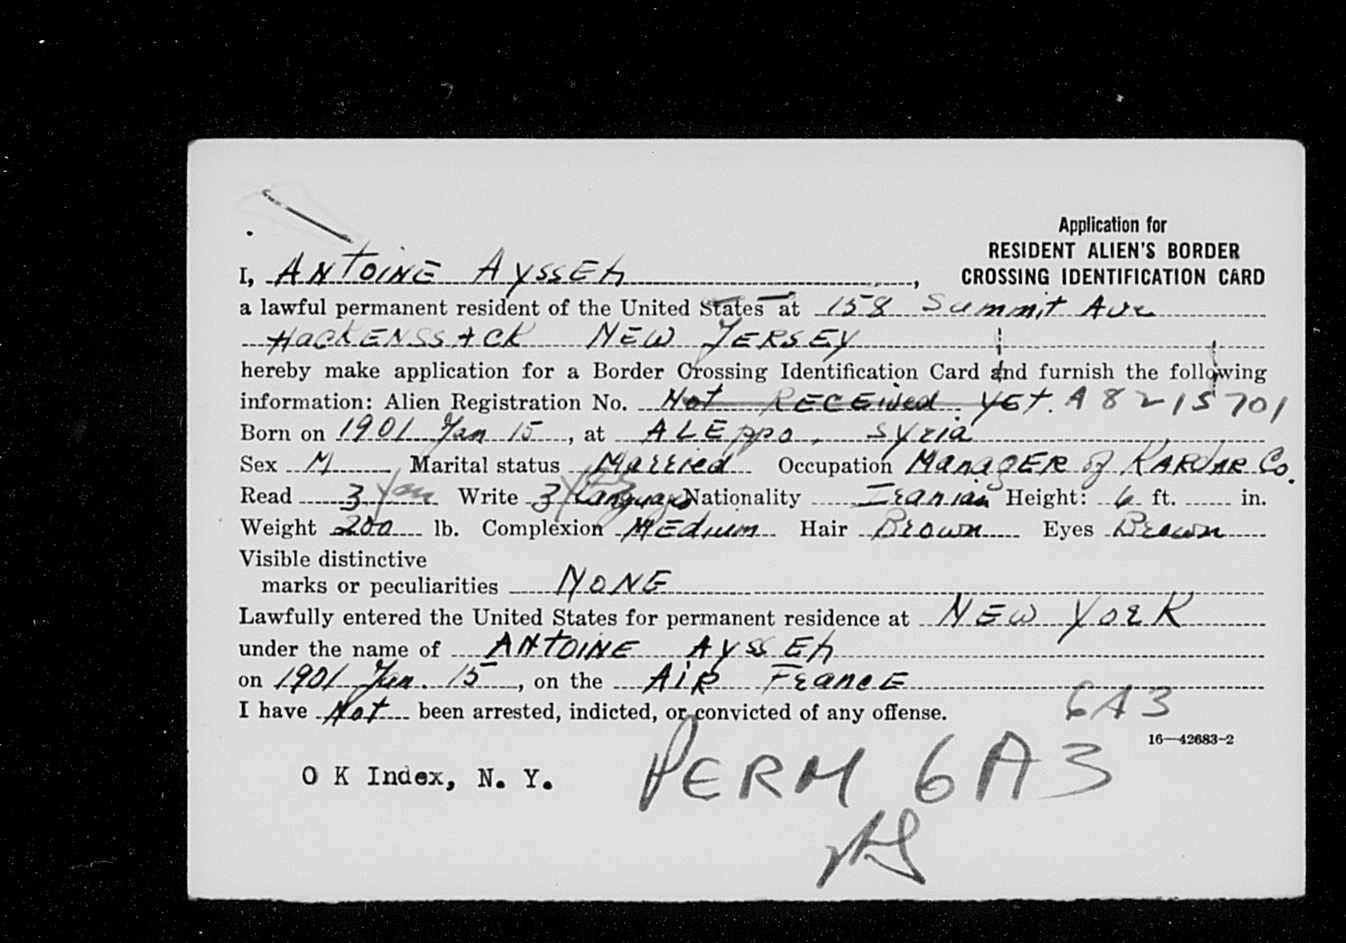 Application for
RESIDENT ALIEN'S BORDER
CROSSING IDENTIFICATION CARD
I, ANTOINE AYSSEh,
a lawful permanent resident of the United States at 158 Summit Ave
HACKENSSACK NEW JERSEY
hereby make application for a Border Crossing Identification Card and furnish the following
information: Alien Registration No. Not RECEived YET. A8215701
Born on 1901 Jan 15, at ALEppo, Syria
Sex M Marital status Married Occupation MANAGER of KARDAR Co.
Read 3 Write 3 Languages Nationality Iranian Height: 6 ft. in.
Weight 200 lb. Complexion MEdium Hair Brown Eyes Brown
Visible distinctive
marks or peculiarities NONE
Lawfully entered the United States for permanent residence at NEW YORK
under the name of ANTOINE AYSSEh
on 1901 Jan. 15, on the AIR FRANCE
I have Not been arrested, indicted, or convicted of any offense.
6A3
16—42683-2
O K Index, N. Y.
PERM 6A3